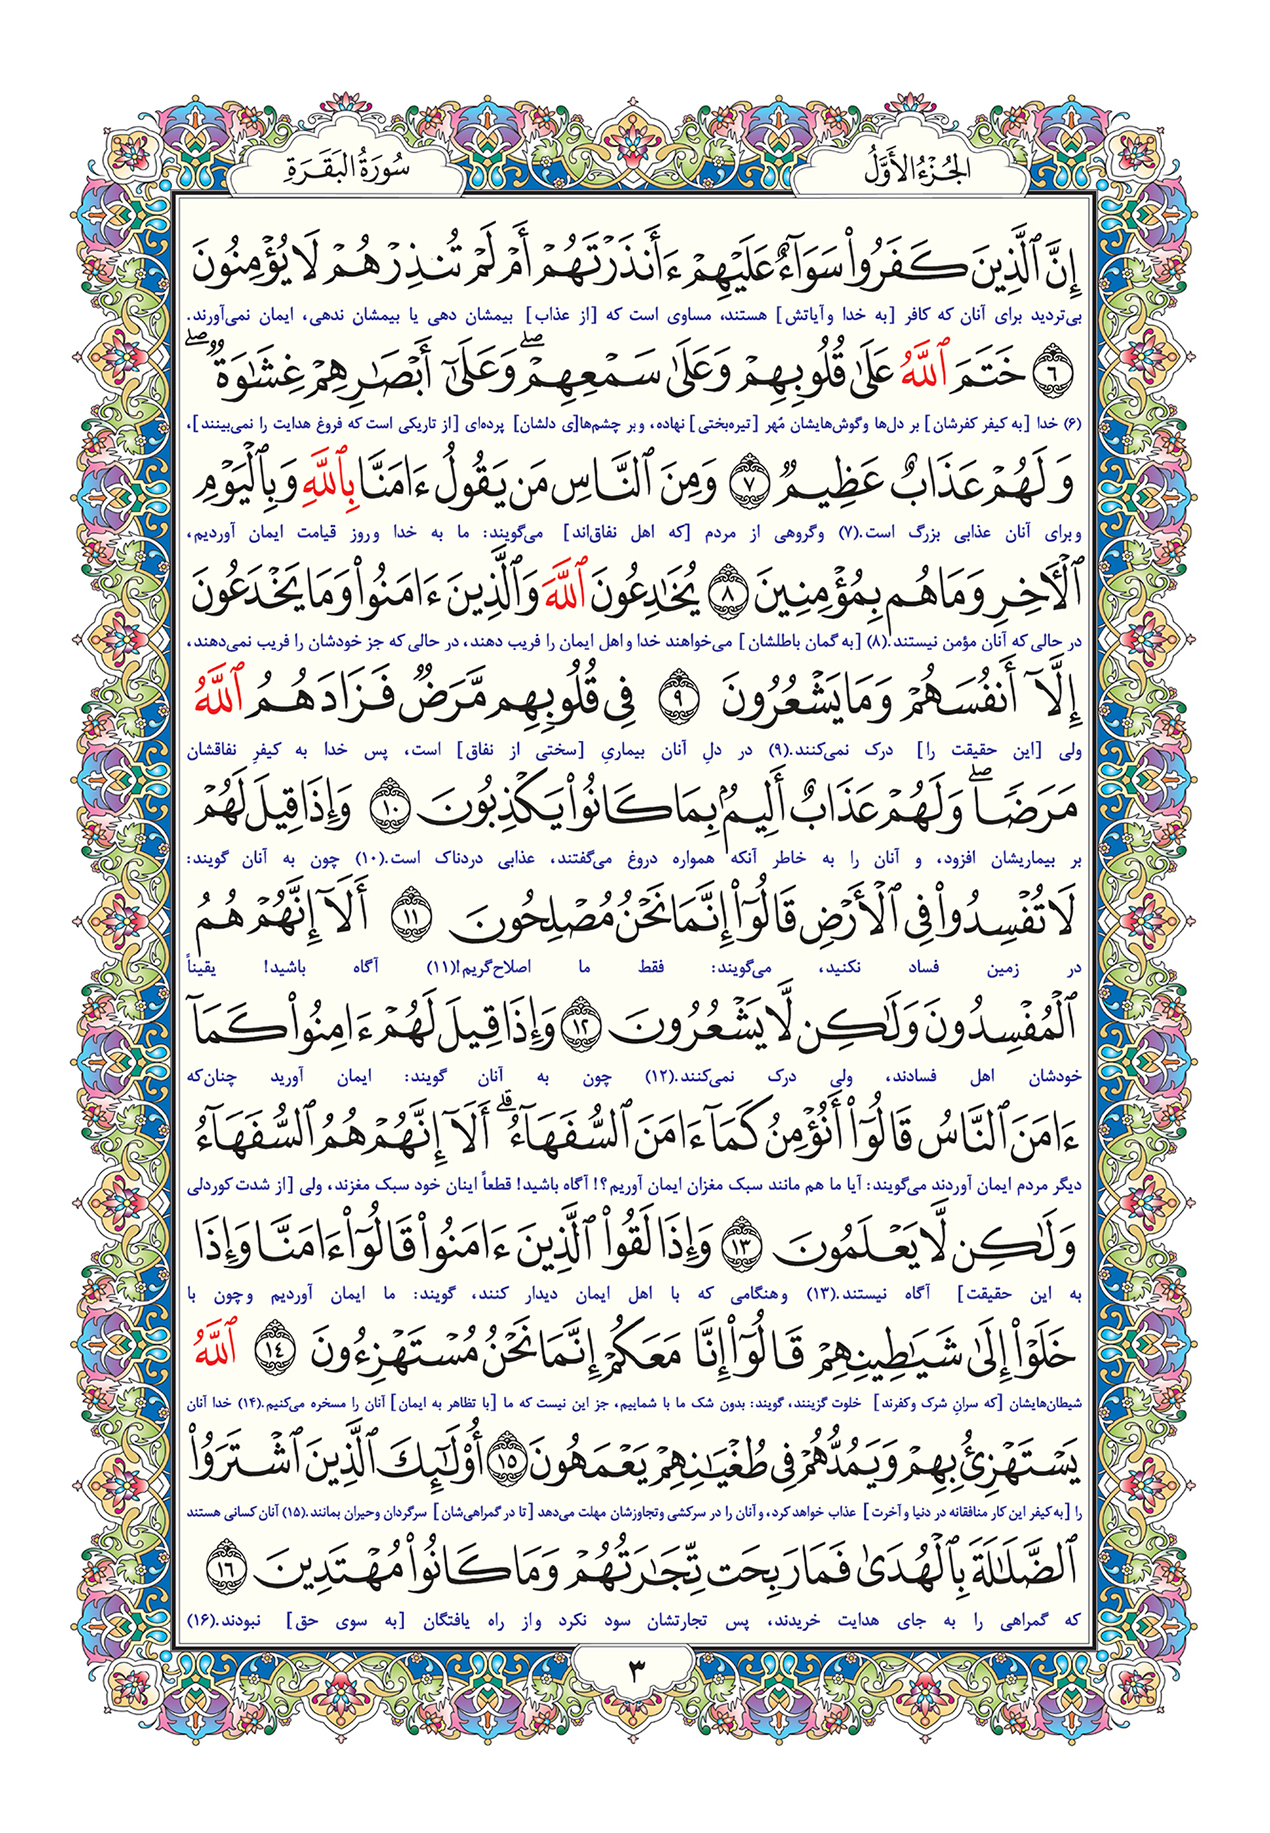 الجُزْءُ الأَوَّلُ
سُورَةُ البَقَرَةِ
إِنَّ ٱلَّذِينَ كَفَرُوا۟ سَوَآءٌ عَلَيْهِمْ ءَأَنذَرْتَهُمْ أَمْ لَمْ تُنذِرْهُمْ لَا يُؤْمِنُونَ
بی‌تردید برای آنان که کافر [به خدا و آیاتش] هستند، مساوی است که [از عذاب] بیمشان دهی یا بیمشان ندهی، ایمان نمی‌آورند.
﴿٦﴾ خَتَمَ ٱللَّهُ عَلَىٰ قُلُوبِهِمْ وَعَلَىٰ سَمْعِهِمْ ۖ وَعَلَىٰٓ أَبْصَـٰرِهِمْ غِشَـٰوَةٌ ۖ
(۶) خدا [به کیفر کفرشان] بر دل‌ها و گوش‌هایشان مُهر [تیره‌بختی] نهاده، و بر چشم‌ها[ی دلشان] پرده‌ای [از تاریکی است که فروغ هدایت را نمی‌بینند]،
وَلَهُمْ عَذَابٌ عَظِيمٌ ﴿٧﴾ وَمِنَ ٱلنَّاسِ مَن يَقُولُ ءَامَنَّا بِٱللَّهِ وَبِٱلْيَوْمِ
و برای آنان عذابی بزرگ است.(۷) و گروهی از مردم [که اهل نفاق‌اند] می‌گویند: ما به خدا و روز قیامت ایمان آوردیم،
ٱلْـَٔاخِرِ وَمَا هُم بِمُؤْمِنِينَ ﴿٨﴾ يُخَـٰدِعُونَ ٱللَّهَ وَٱلَّذِينَ ءَامَنُوا۟ وَمَا يَخْدَعُونَ
در حالی که آنان مؤمن نیستند.(۸) [به گمان باطلشان] می‌خواهند خدا و اهل ایمان را فریب دهند، در حالی که جز خودشان را فریب نمی‌دهند،
إِلَّآ أَنفُسَهُمْ وَمَا يَشْعُرُونَ ﴿٩﴾ فِى قُلُوبِهِم مَّرَضٌ فَزَادَهُمُ ٱللَّهُ
ولی [این حقیقت را] درک نمی‌کنند.(۹) در دلِ آنان بیماریِ [سختی از نفاق] است، پس خدا به کیفرِ نفاقشان
مَرَضًا ۖ وَلَهُمْ عَذَابٌ أَلِيمٌۢ بِمَا كَانُوا۟ يَكْذِبُونَ ﴿١٠﴾ وَإِذَا قِيلَ لَهُمْ
بر بیماریشان افزود، و آنان را به خاطر آنکه همواره دروغ می‌گفتند، عذابی دردناک است.(۱۰) چون به آنان گویند:
لَا تُفْسِدُوا۟ فِى ٱلْأَرْضِ قَالُوٓا۟ إِنَّمَا نَحْنُ مُصْلِحُونَ ﴿١١﴾ أَلَآ إِنَّهُمْ هُمُ
در زمین فساد نکنید، می‌گویند: فقط ما اصلاح‌گریم!(۱۱) آگاه باشید! یقیناً
ٱلْمُفْسِدُونَ وَلَـٰكِن لَّا يَشْعُرُونَ ﴿١٢﴾ وَإِذَا قِيلَ لَهُمْ ءَامِنُوا۟ كَمَآ
خودشان اهل فسادند، ولی درک نمی‌کنند.(۱۲) چون به آنان گویند: ایمان آورید چنان‌که
ءَامَنَ ٱلنَّاسُ قَالُوٓا۟ أَنُؤْمِنُ كَمَآ ءَامَنَ ٱلسُّفَهَآءُ ۗ أَلَآ إِنَّهُمْ هُمُ ٱلسُّفَهَآءُ
دیگر مردم ایمان آوردند می‌گویند: آیا ما هم مانند سبک مغزان ایمان آوریم؟! آگاه باشید! قطعاً اینان خود سبک مغزند، ولی [از شدت کوردلی
وَلَـٰكِن لَّا يَعْلَمُونَ ﴿١٣﴾ وَإِذَا لَقُوا۟ ٱلَّذِينَ ءَامَنُوا۟ قَالُوٓا۟ ءَامَنَّا وَإِذَا
به این حقیقت] آگاه نیستند.(۱۳) و هنگامی که با اهل ایمان دیدار کنند، گویند: ما ایمان آوردیم و چون با
خَلَوْا۟ إِلَىٰ شَيَـٰطِينِهِمْ قَالُوٓا۟ إِنَّا مَعَكُمْ إِنَّمَا نَحْنُ مُسْتَهْزِءُونَ ﴿١٤﴾ ٱللَّهُ
شیطان‌هایشان [که سرانِ شرک و کفرند] خلوت گزینند، گویند: بدون شک ما با شماییم، جز این نیست که ما [با تظاهر به ایمان] آنان را مسخره می‌کنیم.(۱۴) خدا آنان
يَسْتَهْزِئُ بِهِمْ وَيَمُدُّهُمْ فِى طُغْيَـٰنِهِمْ يَعْمَهُونَ ﴿١٥﴾ أُو۟لَـٰٓئِكَ ٱلَّذِينَ ٱشْتَرَوُا۟
را [به کیفر این کار منافقانه در دنیا و آخرت] عذاب خواهد کرد، و آنان را در سرکشی و تجاوزشان مهلت می‌دهد [تا در گمراهی‌شان] سرگردان و حیران بمانند.(۱۵) آنان کسانی هستند
ٱلضَّلَـٰلَةَ بِٱلْهُدَىٰ فَمَا رَبِحَت تِّجَـٰرَتُهُمْ وَمَا كَانُوا۟ مُهْتَدِينَ ﴿١٦﴾
که گمراهی را به جای هدایت خریدند، پس تجارتشان سود نکرد و از راه یافتگان [به سوی حق] نبودند.(۱۶)
۳